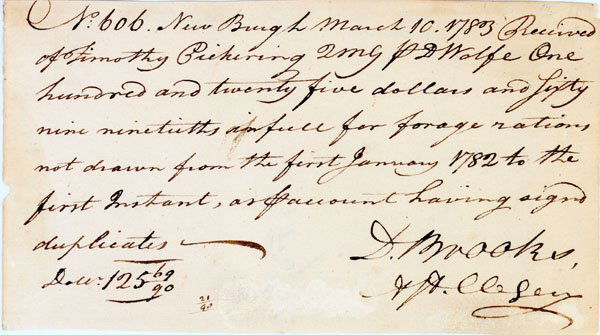 No. 606. New Burgh March 10. 1783 Received
of Timothy Pickering QMG ⅌ D Wolfe One
hundred and twenty five dollars and sixty
nine ninetieths in full for forage rations
not drawn from the first January 1782 to the
first Instant, as ⅌ account having signd
duplicates
Dolls. 125 69/90
D. Brooks,
21/90